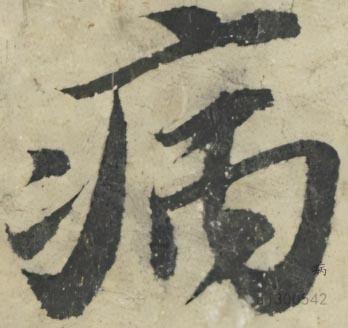 病
病
d1300542